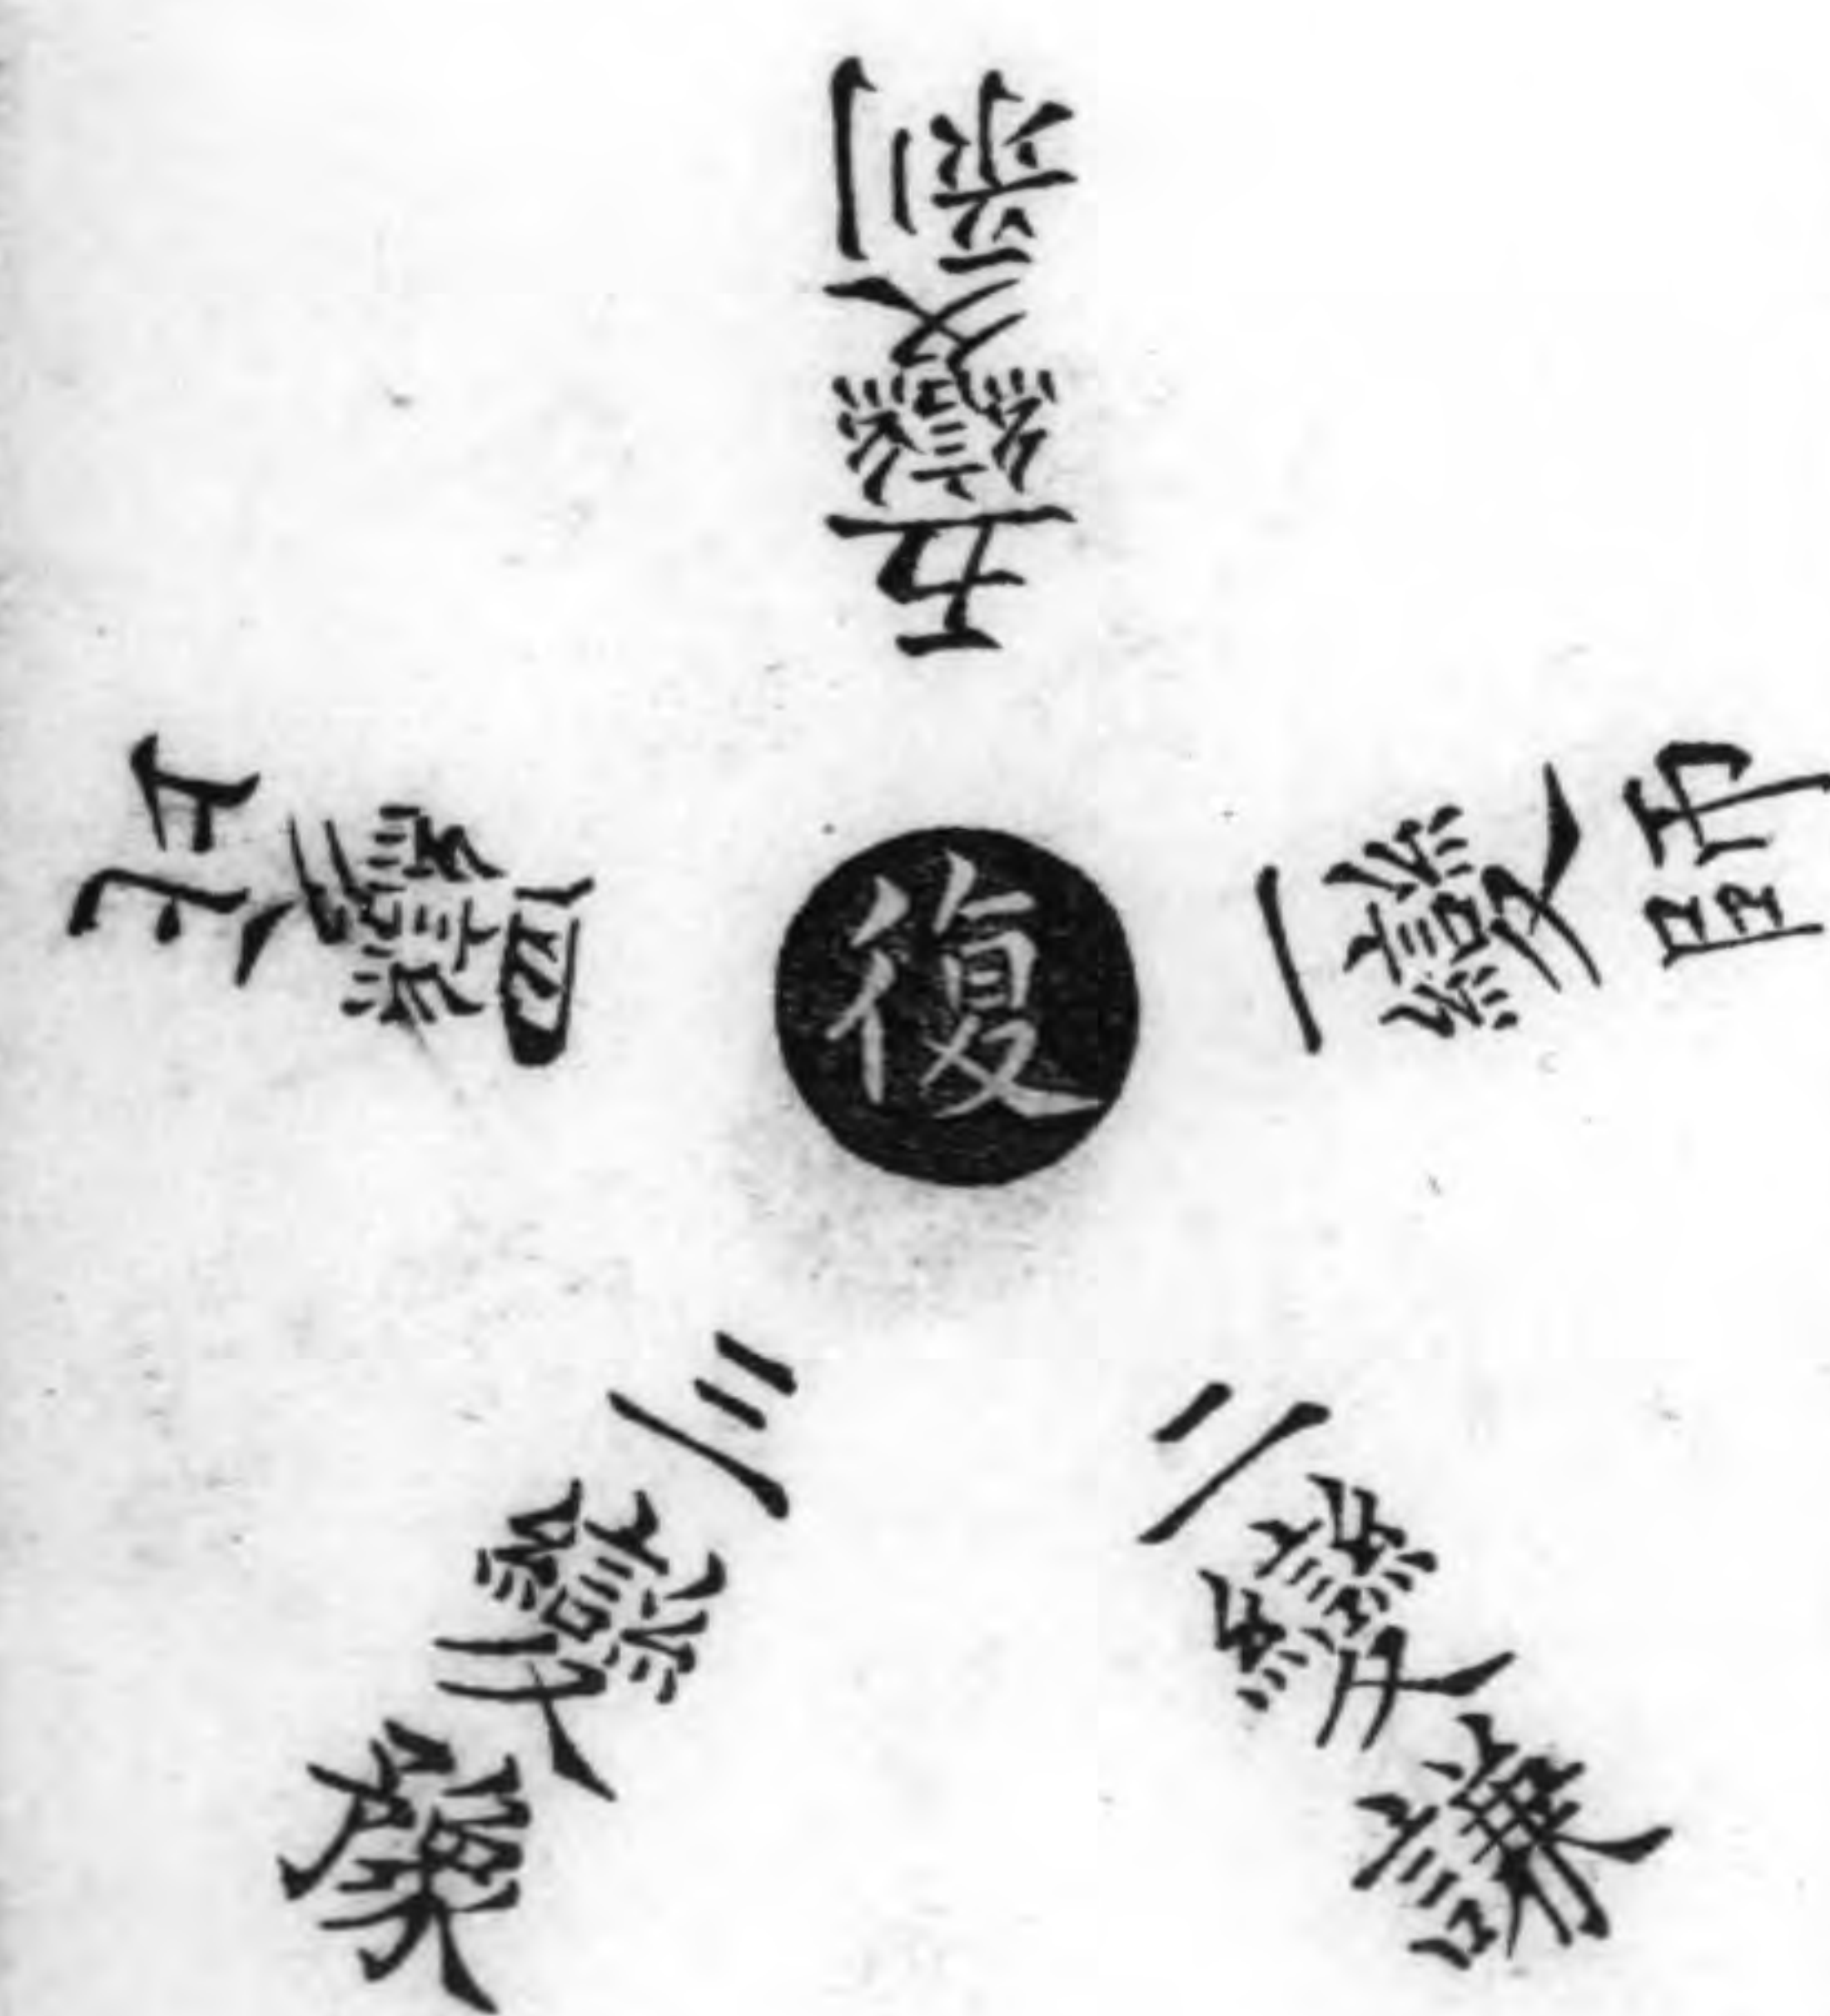 復
一變師
二變謙
三變豫
四變比
五變剝